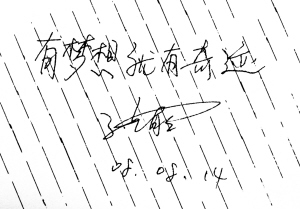 有梦想就有奇迹
08.08.14